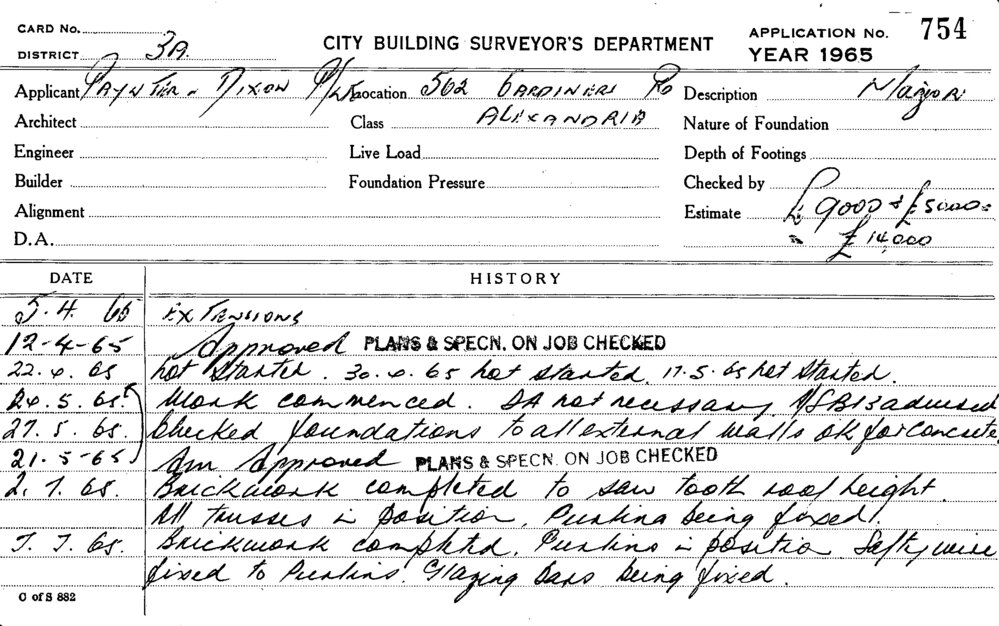 CARD No.
DISTRICT 3A.
CITY BUILDING SURVEYOR'S DEPARTMENT
APPLICATION No. 754
YEAR 1965
Applicant Paynter & Dixon P/L Location 562 Gardiners Rd Description Major
Architect Class ALEXANDRIA Nature of Foundation
Engineer Live Load Depth of Footings
Builder Foundation Pressure Checked by
Alignment Estimate £9000 + £5000 =
D.A. £14,000
DATE HISTORY
5.4.65 Extensions
12-4-65 Approved PLANS & SPECN. ON JOB CHECKED
22.4.65 not started. 30.4.65 not started. 17.5.65 not started.
24.5.65. Work commenced. DA not necessary advised
27.5.65. Checked foundations to all external walls ok for concrete
21-5-65 Am Approved PLANS & SPECN. ON JOB CHECKED
2.7.65. Brickwork completed to saw tooth roof height.
All trusses in position, Purlins being fixed.
7.7.65. Brickwork completed. Purlins in position Safty wire
fixed to Purlins. Glazing bars being fixed.
C of S 882